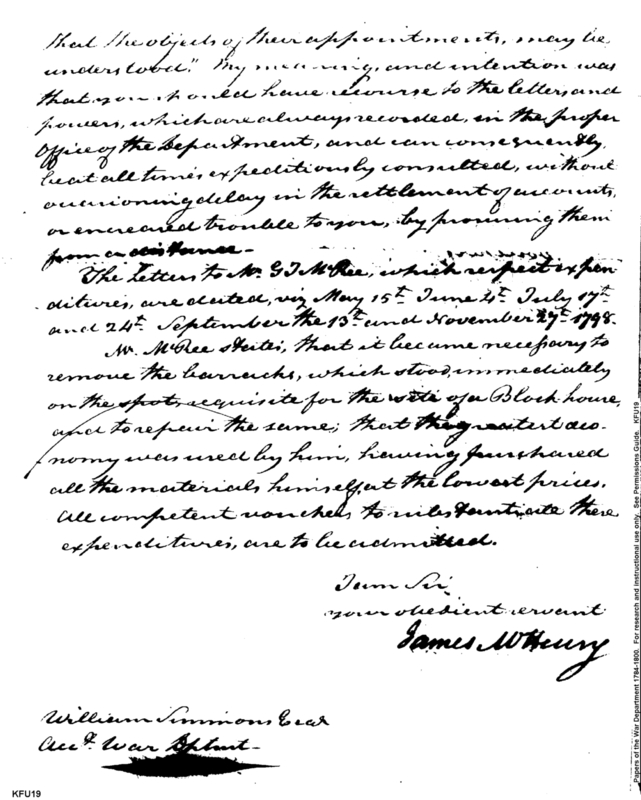 that the objects of their appointments, may be
understood." My meaning and intention was
that you should have recourse to the letters and
powers, which are always recorded, in the proper
Office of the Department, and can consequently,
be at all times expeditiously consulted, without
occasioning delay in the settlement of accounts,
or encreased trouble to you, by procuring them
from a distance-
The Letters to Mr. G J McRee, which respect expen
ditures, are dated, viz May 15th June 4th July 17th
and 24th September the 13th and November 27th 1798.
Mr. McRee states, that it became necessary to
remove the barracks, which stood immediately
on the spot, requisite for the site of a Block house,
and to repair the same; that the greatest œco-
nomy was used by him, having purchased
all the materials himself, at the lowest prices.
All competent vouchers to substantiate these
expenditures, are to be admitted.
I am Sir
your obedient servant
James McHenry
William Simmons Esqr
Acct. War Dptmt-
KFU19
Papers of the War Department 1784-1800. For research and instructional use only. See Permissions Guide. KFU19